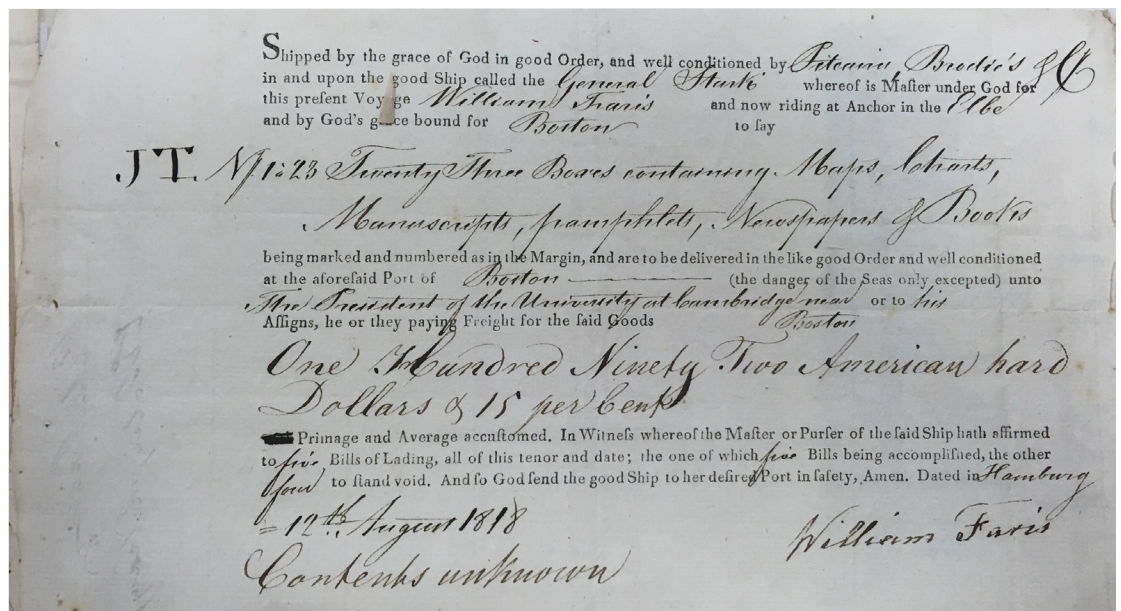 Shipped by the grace of God in good Order, and well conditioned by Pitcairn, Brodie's & Co
in and upon the good Ship called the General Stark whereof is Maſter under God for
this preſent Voyage William Faris and now riding at Anchor in the Elbe
and by God's grace bound for Boston to ſay
J T. No 1 à 23 Twenty Three Boxes containing Maps, Charts,
Manuscripts, pamphlets, Newspapers & Books
being marked and numbered as in the Margin, and are to be delivered in the like good Order and well conditioned
at the aforeſaid Port of Boston (the danger of the Seas only excepted) unto
The President of the University at Cambridge near Boston or to his
Aſſigns, he or they paying Freight for the ſaid Goods
One Hundred Ninety Two American hard
Dollars & 15 per Cent
Primage and Average accuſtomed. In Witneſs whereof the Maſter or Purſer of the ſaid Ship hath affirmed
to five Bills of Lading, all of this tenor and date; the one of which five Bills being accompliſhed, the other
four to ſtand void. And ſo God ſend the good Ship to her deſired Port in ſafety, Amen. Dated in Hamburg
= 12th. August 1818
William Faris
Contents unknown